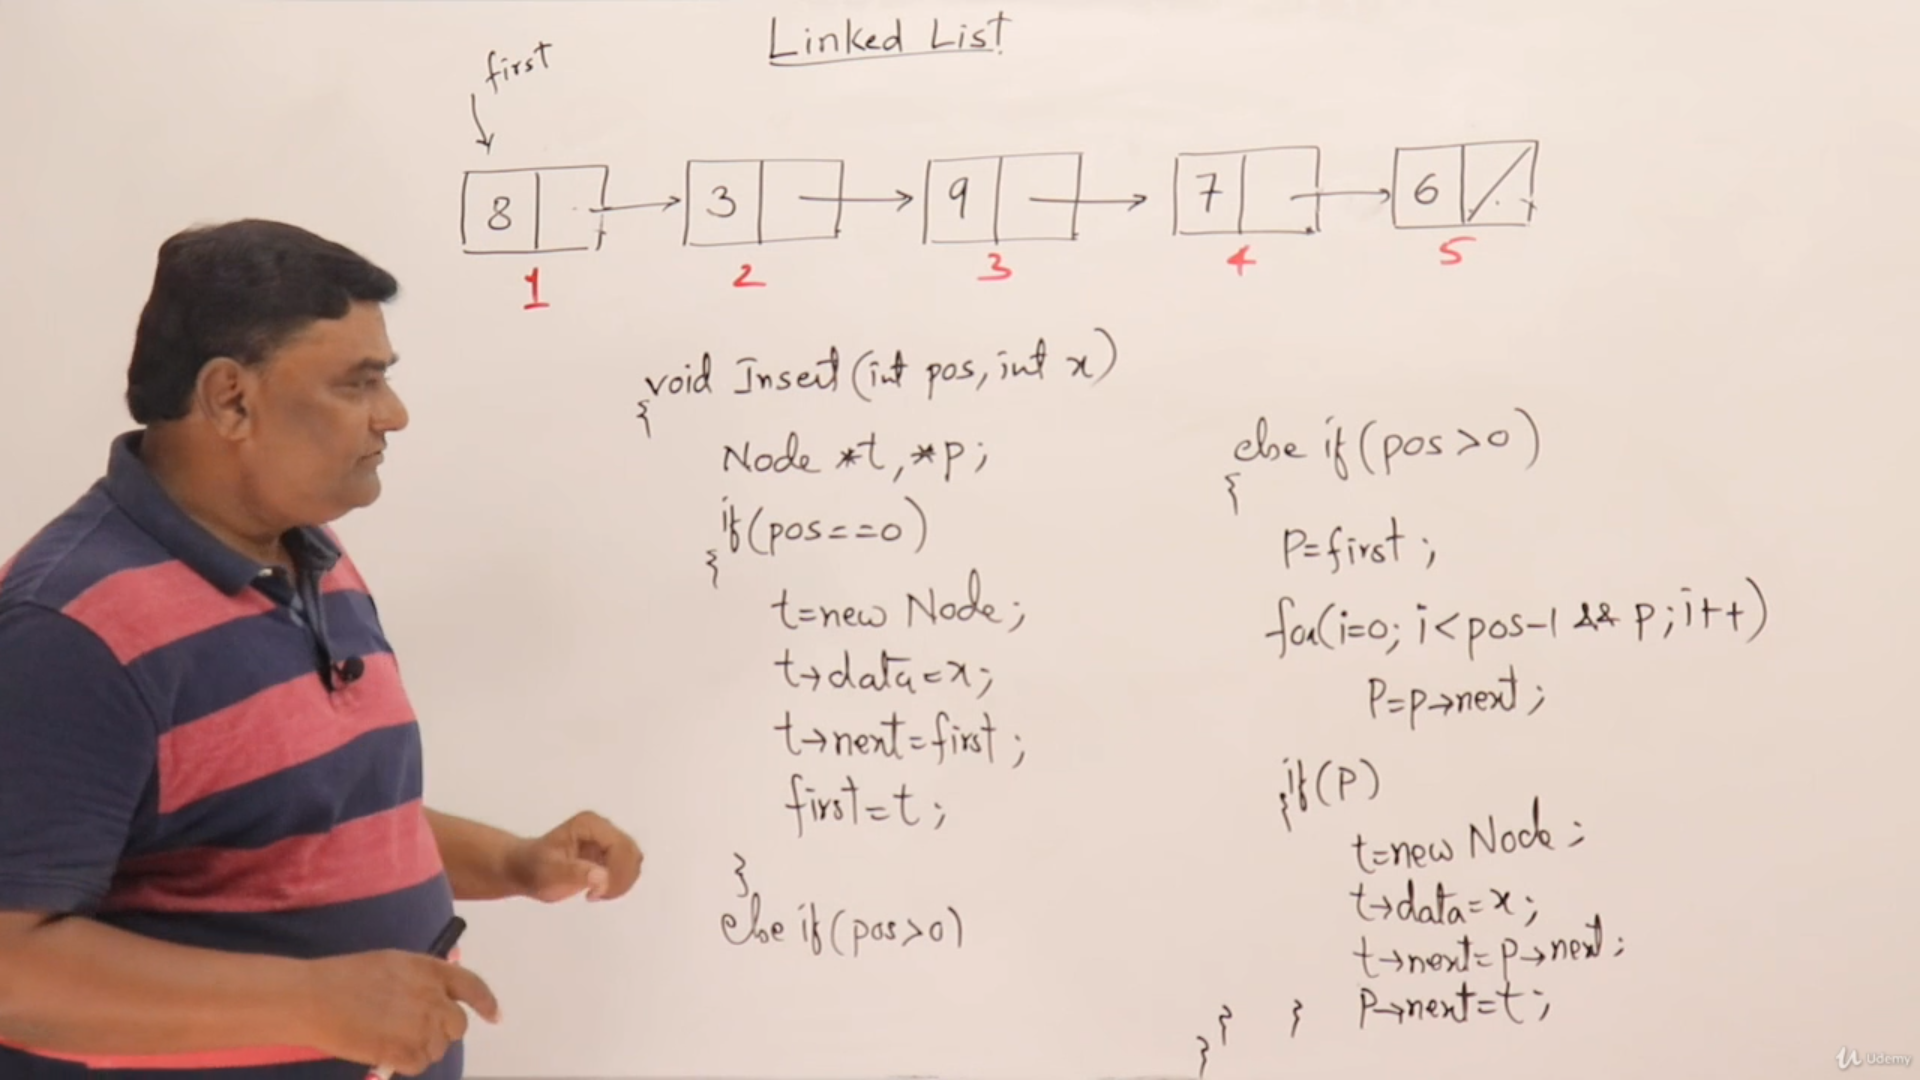 Linked List
first
8 3 9 7 6
1 2 3 4 5
void Insert(int pos, int x)
{
Node *t, *p;
if(pos==0)
{
t=new Node;
t→data=x;
t→next=first;
first=t;
}
else if(pos>0)
else if(pos>0)
{
P=first;
for(i=0; i<pos-1 && p; i++)
P=p→next;
if(P)
{
t=new Node;
t→data=x;
t→next=p→next;
P→next=t;
}
}
}
Udemy